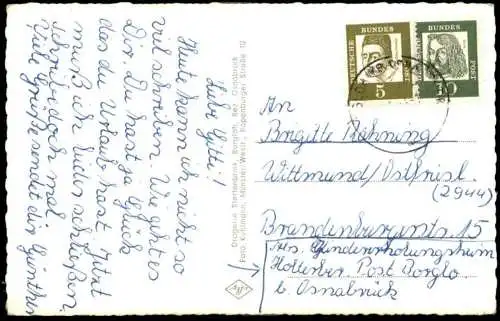 Liebe Gitti!
Heute kann ich nicht so
viel schreiben. Wie geht es
Dir. Du hast ja Glück
das du Urlaub hast. Jetzt
muß ich Schluß schließen,
schreib doch mal
Viele Grüße sendet dir Günther
Drogerie Stertenbrink, Borgloh, Bez. Osnabrück
Foto Kühlmann, Münster-West., Rüpenburger Straße 10
Agfa
DEUTSCHE
BUNDES
POST
5
DEUTSCHE
BUNDES
POST
10
An
Brigitte Röhning
Wittmund/Ostfriesl.
(2944)
Brandenburgerstr. 15
Abs. Kindererholungsheim
Holterberg Post Borglo
b. Osnabrück